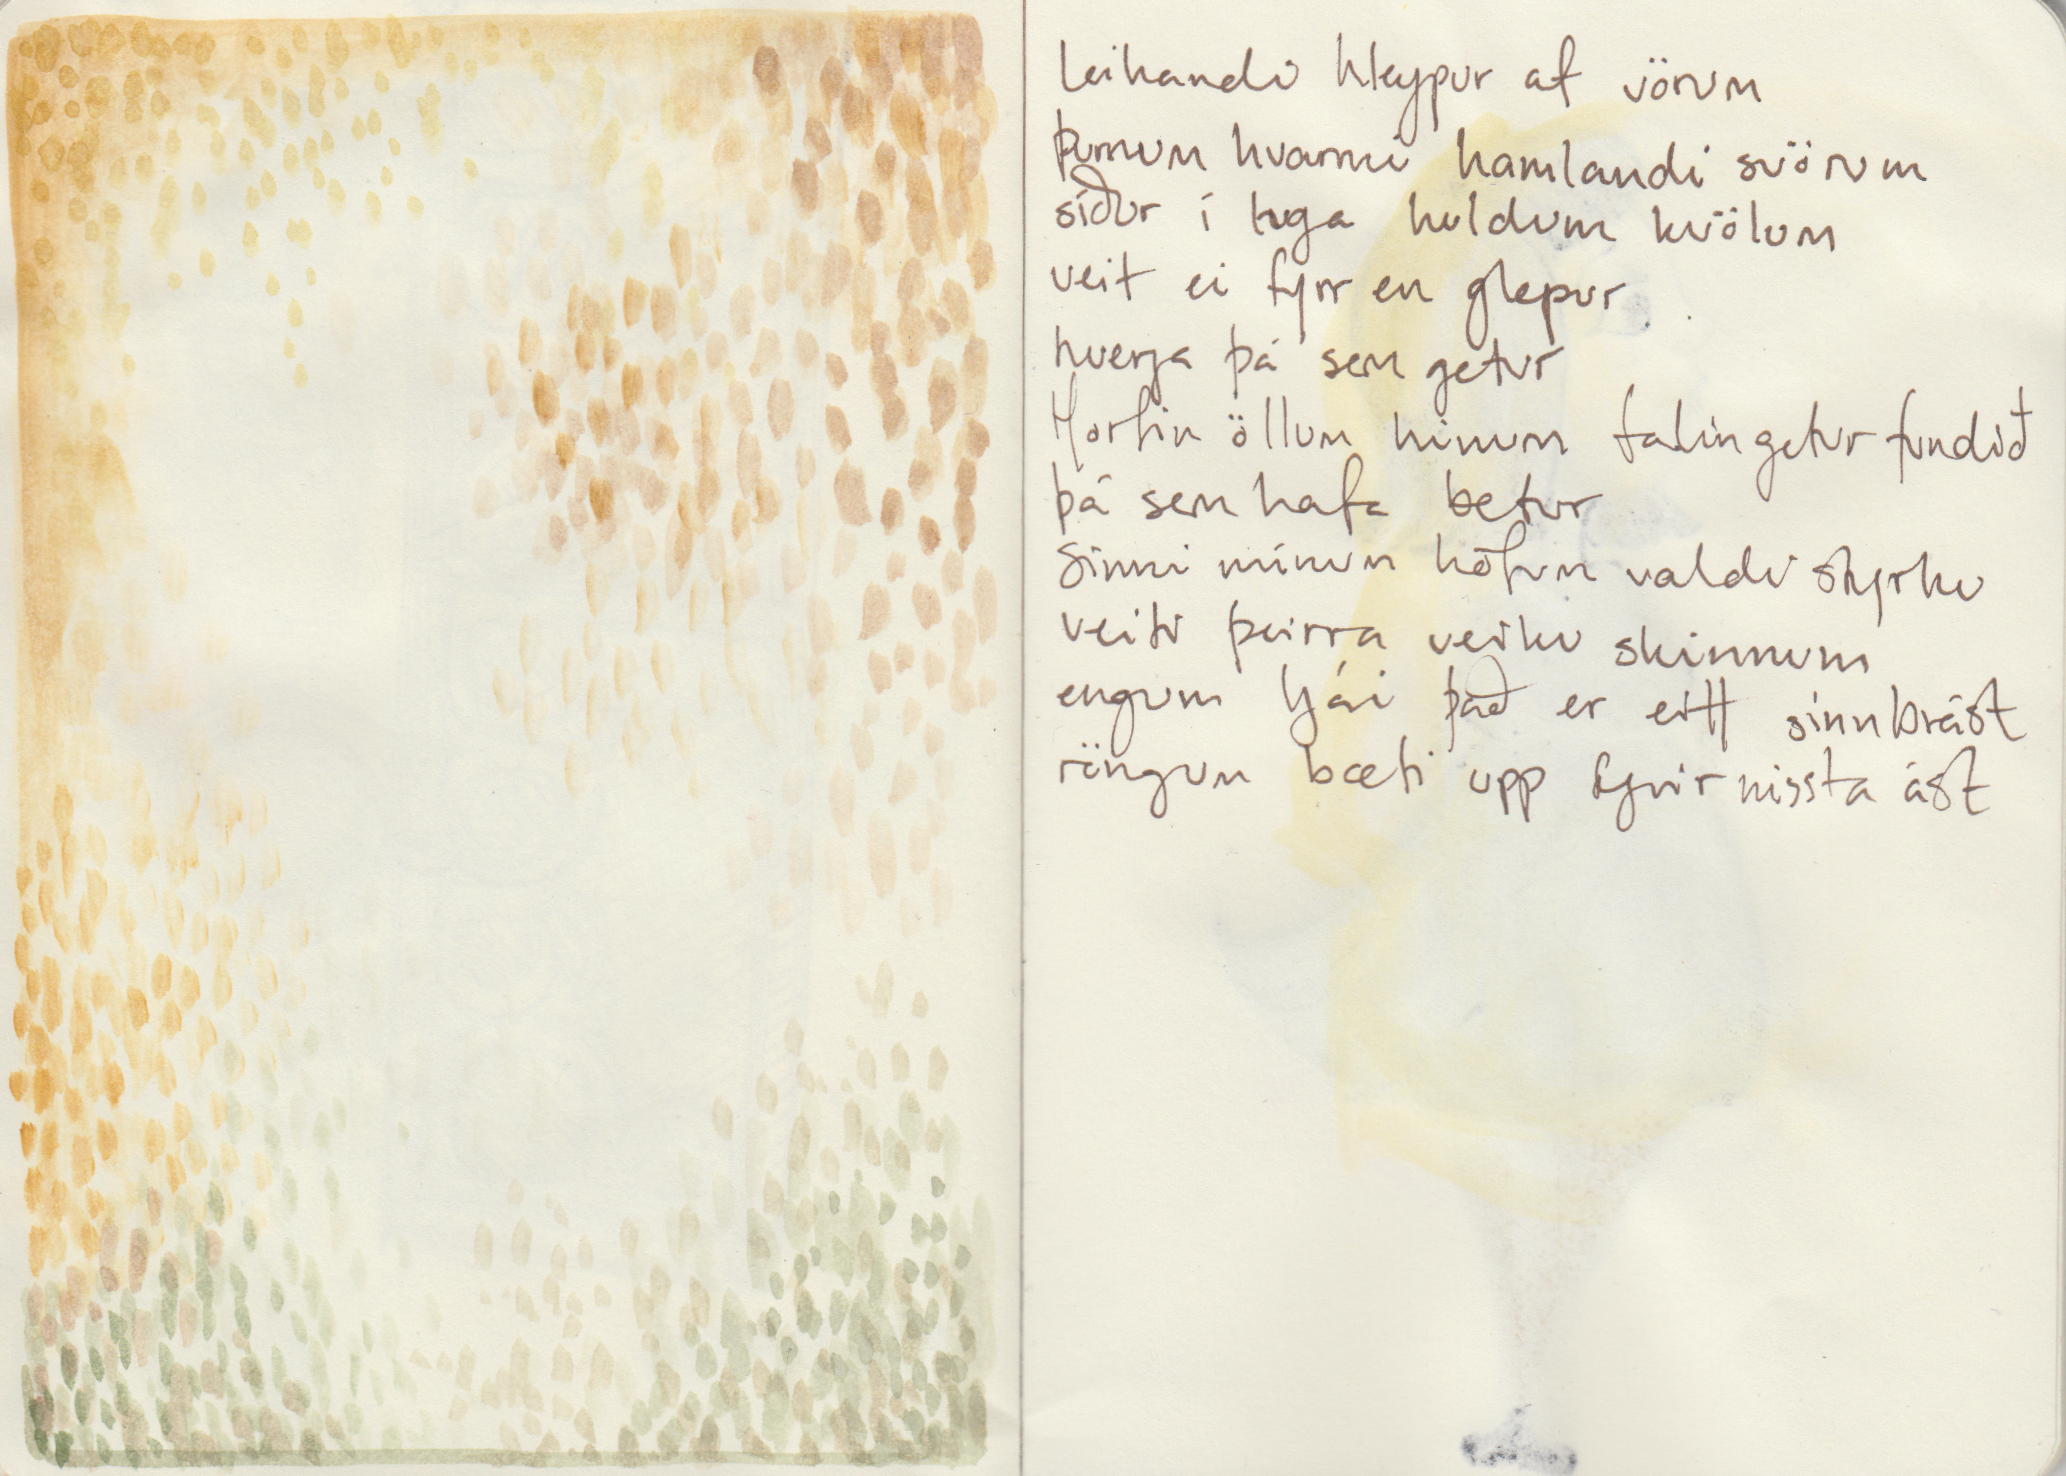 leikandi hleypur af vörum
þurrum hvarmi hamlandi svörum
síður í tuga huldum kvölum
veit ei fyrr en glepur
hverja þá sem getur
Horfin öllum hinum falin getur fundið
þá sem hafa betur
Sinni mínum höfum valdi styrku
veiti þeirra veiku skinnum
engum ljái það er eitt sinn brást
röngum bæti upp fyrir missta ást